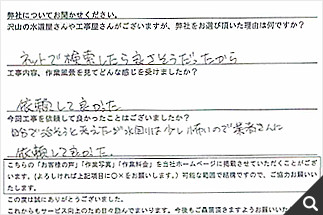 弊社についてお聞かせください。
沢山の水道屋さんや工事屋さんがございますが、弊社をお選び頂いた理由は何ですか?
ネットで検索したら良さそうだったから
工事内容、作業風景を見てどんな感じを受けましたか?
依頼して良かった
今回工事を依頼して良かったことはございますか?
自分で治そうと思えたが水回りは少し怖いので業者さんに
依頼して良かった。
こちらの「お客様の声」「作業写真」「作業料金」を当社ホームページに掲載させていただくことがござい
ます。(よろしければ上記項目に○×をお願いします。)可能な範囲で結構ですので、ご協力お願いい
たします。
この度は誠にありがとうございました。
これからもサービス向上のため日々励んでまいります。今後もご贔屓頂きますようお願いいた